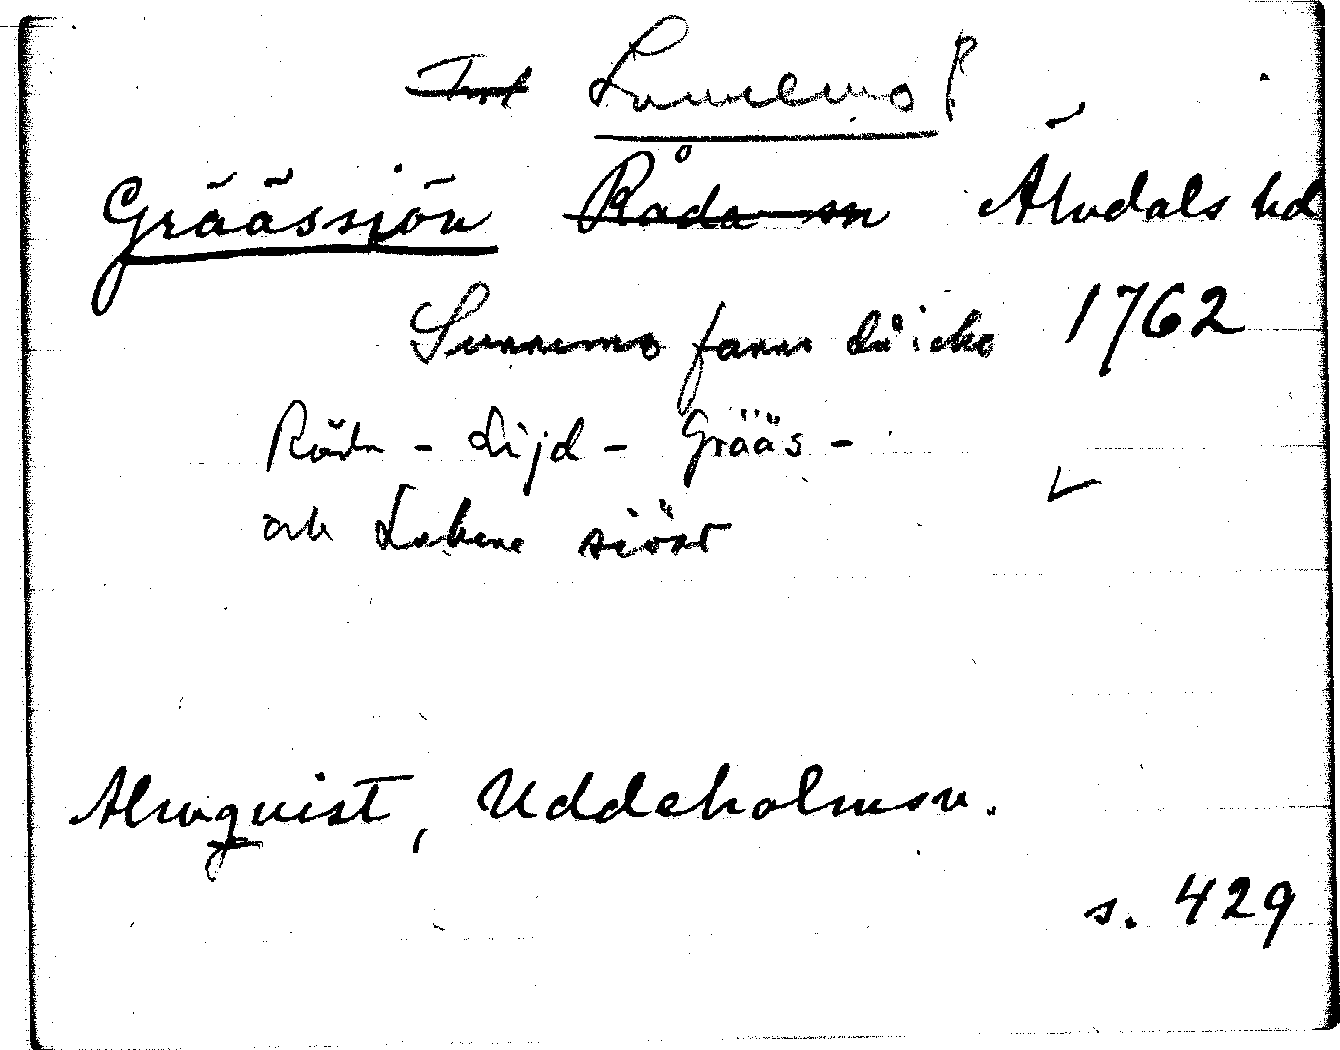 Sunnemo?
Gräässjön Råda sn Älvdals hd
Sunnemo fanns då icke 1762
Råda - Lijd - Grääs -
och Lakene siöar
Almquist, Uddeholmsv.
s. 429